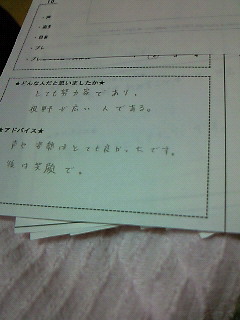 ★どんな人だと思いましたか★
とても努力家であり、
視野が広い人である。
★アドバイス★
声や姿勢はとても良かったです。
後は笑顔で。